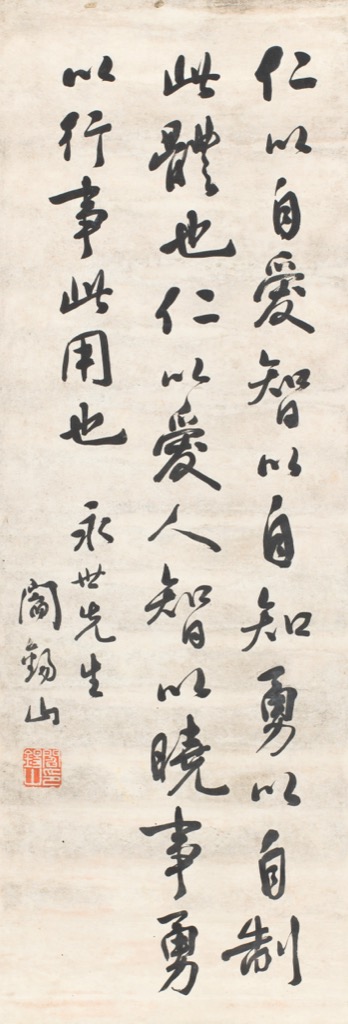 仁以自愛智以自知勇以自制
此體也仁以愛人智以曉事勇
以行事此用也
永世先生
閻錫山
閻錫山印